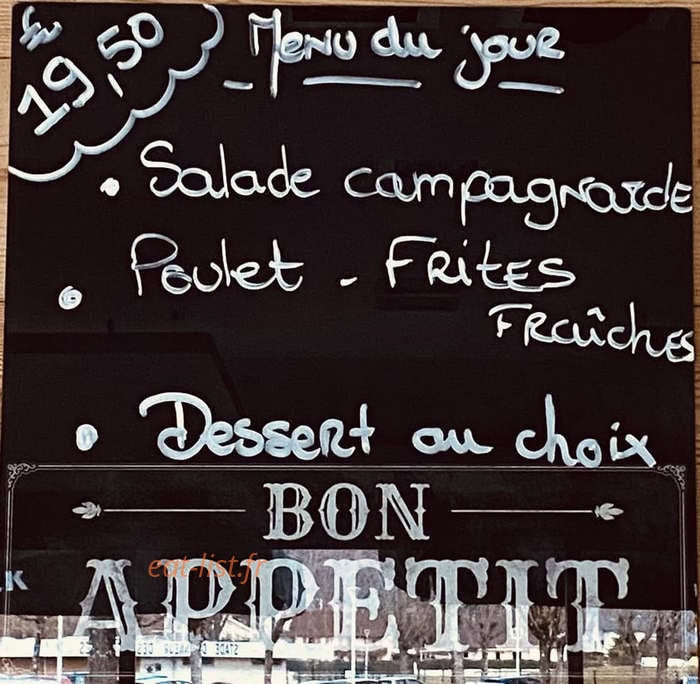 Menu du jour
19,50
• Salade campagnarde
• Poulet - Frites
Fraîches
• Dessert au choix
BON
APPETIT
eat-list.fr